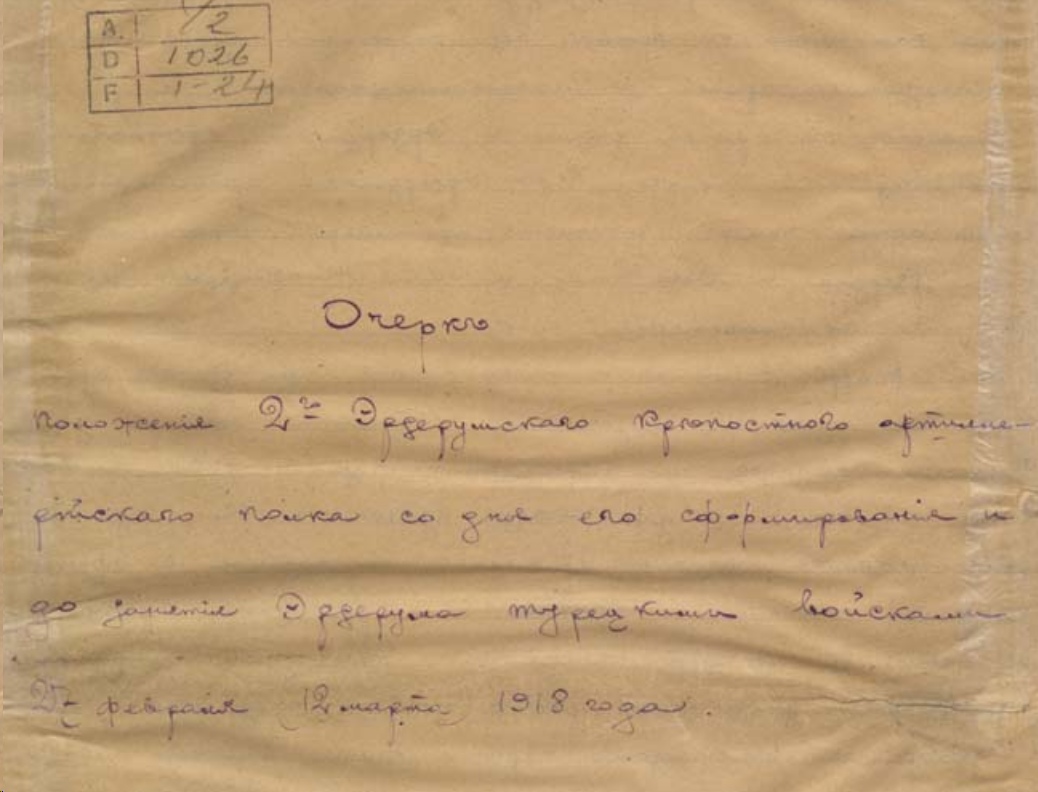 A. 1/2
D 1026
F 1-24
Очеркъ
положенія 2го Эрзерумскаго крѣпостного артилле-
рійскаго полка со дня его сформированія и
до занятія Эрзерума турецкими войсками
27 февраля (12 марта) 1918 года.